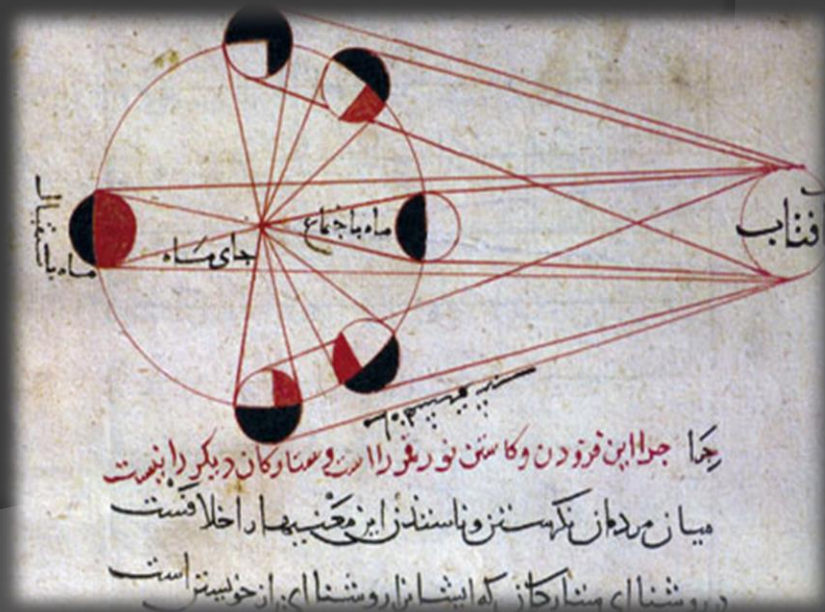 افتاب
ماه باجتماع
جای ماه
ماه باستقبال
چرا چرا این فزودن وکاستن نور قمر را است وستارکان دیکر را نیست
میان مردمان نکرستن این معنیها را خلافست
روشنا ای ستارکان که ایشانرا روشنا ای از خویشتن است